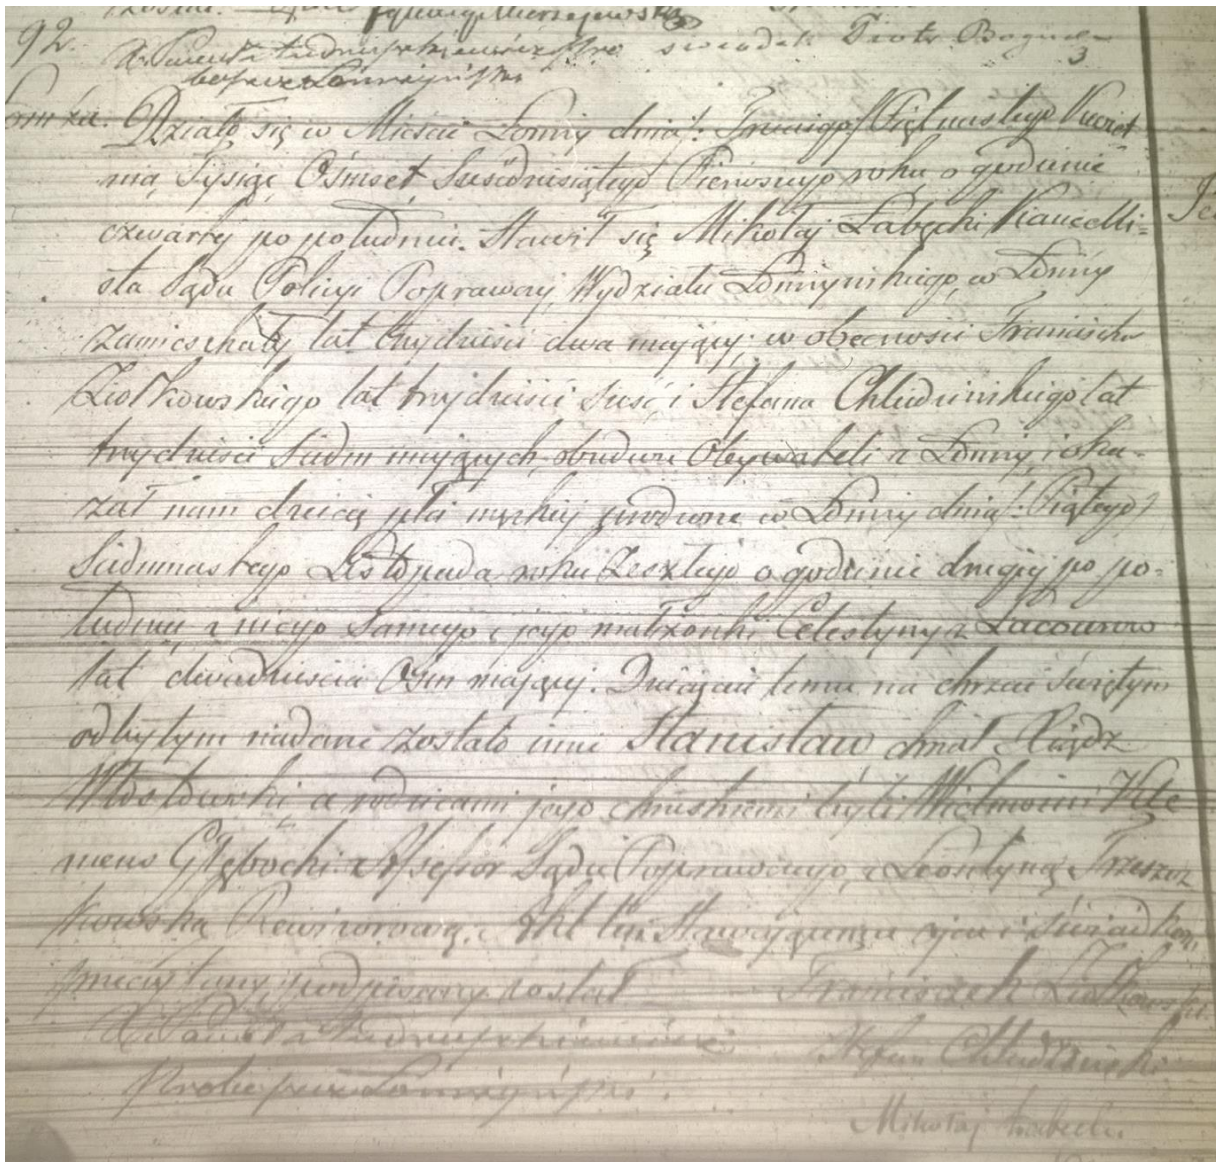 92.
świadek Piotr
Działo się w Mieście Łomży dnia: Trzeciego/Piętnastego Kwiet
nia Tysiąc Ośmset Sześćdziesiątego Pierwszego roku o godzinie
czwartej po południu. Stawił się Mikołaj Łabęcki Kancelli-
sta Sądu Policyi Poprawczej Wydziału Łomżyńskiego, w Łomży
zamieszkały lat trzydzieści dwa mający; w obecności Franciszka
Ziołkowskiego lat trzydzieści sześć i Stefana Chludzińskiego lat
trzydzieści siedm mających, obudwu Obywateli z Łomży, i oka-
zał nam dziecię płci męzkiej urodzone w Łomży dnia: Piątego/
Siedmnastego Listopada roku zeszłego o godzinie drugiej po po-
łudniu z niego samego i jego małżonki Celestyny z
lat dwadzieścia Ośm mającej. Dziecięciu temu na chrzcie świętym
odbytym nadane zostało imie Stanisław Ksiądz
a rodzicami jego chrzestnemi byli Wielmożni Kle
mens Głębocki Assesor Sądu Poprawczego, i Leontyna
kowska Rewizorowa. Akt ten stawającemu ojcu i świadkom
przeczytany podpisany został Franciszek Ziołkowski
Stefan Chludziński
Mikołaj Łabęcki